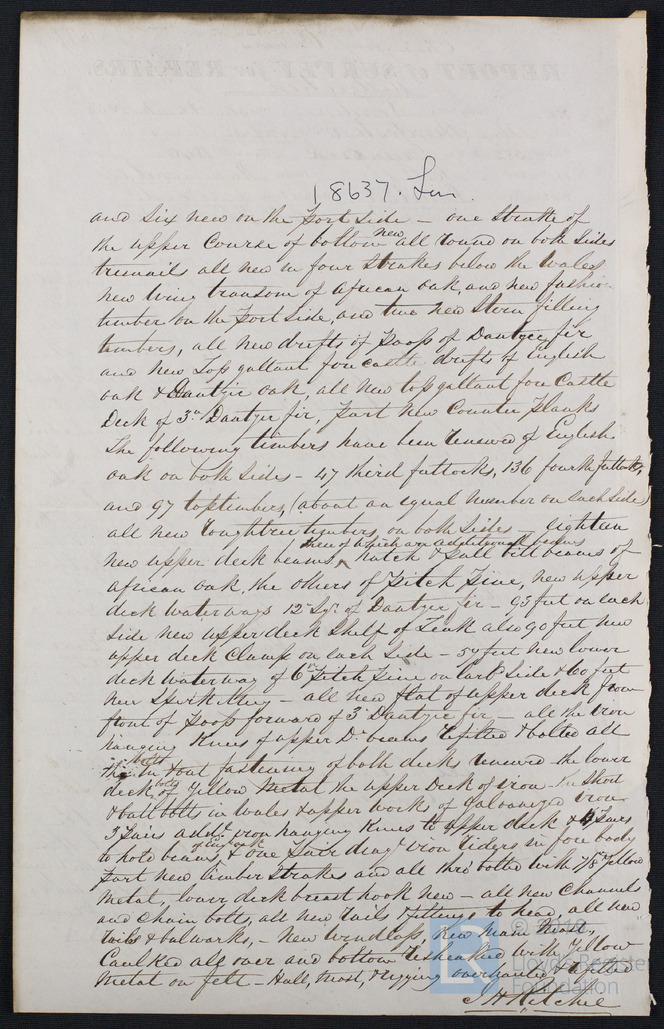 18637. Lon
and six new on the Port Side – one strake of
the upper Course of bottom new all round on both sides
treenails all new in four strakes below the Wales
new wing transom of African oak, and new fashion
timber on the Port Side, and two new Stern filling
timbers, all new drifts of Poop of Dantzic fir
and new Top gallant fore castle drafts of English
oak & Dantzic oak, all new top gallant fore Castle
Deck of 3in Dantzic fir, Part new Counter Planks
The following timbers have been renewed of English
oak on both sides – 47 third futtocks, 136 fourth futtocks,
and 97 toptimbers, (about an equal number on each Side)
all new roughtree timbers on both Sides – eighteen
new upper deck beams, three of which are additional beams hatch & pall bitt beams of
African oak, the others of Pitch Pine, new upper
deck waterways 12 Sqr. of Dantzic fir – 95 feet on each
side new upper deck Shelf of Teak also 90 feet new
upper deck Clamp on each Side – 54 feet new lower
deck waterway of 6in Pitch Pine on Larbd Side & 60 feet
new Spirketting – all new flat of upper deck from
front of Poop forward of 3in Dantzic fir – all the iron
hanging Knees of upper Dk beams refitted & bolted all
the in & out fastening of both decks renewed the lower
deck bolts of Yellow Metal the upper Deck of iron – The Short
& butt bolts in Wales & upper work of Galvanized iron
3 Pairs addl. iron hanging Knees to upper deck & 4 Pairs
to hold beams, of Eng oak & one Pair diagl iron riders in fore body
Part new limber Strakes and all thro' bolted with 7/8 Yellow
Metal, lower deck breast hook new – all new Channels
and Chain bolts, all new rails & fittings to head, all new
rails & bulwarks, – New windlass, New main Mast,
Caulked all over and bottom resheathed with Yellow
Metal on felt – Hull, Mast, & rigging overhauled & refitted
J H Ritchie
© 2019
Lloyd's Register
Foundation